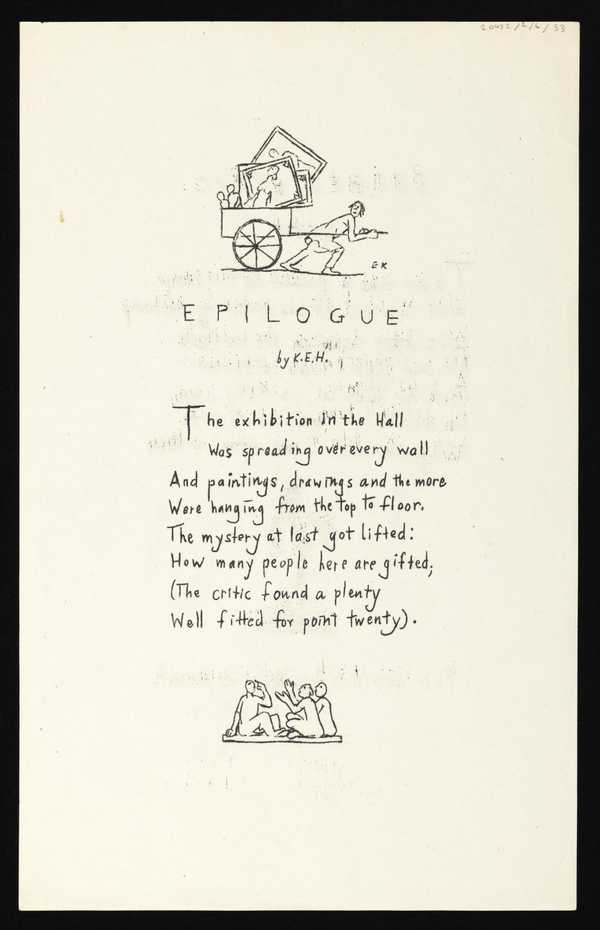 20052/2/6/33
EK
EPILOGUE
by K.E.H.
The exhibition in the Hall
Was spreading over every wall
And paintings, drawings and the more
Were hanging from the top to floor.
The mystery at last got lifted:
How many people here are gifted;
(The critic found a plenty
Well fitted for point twenty).